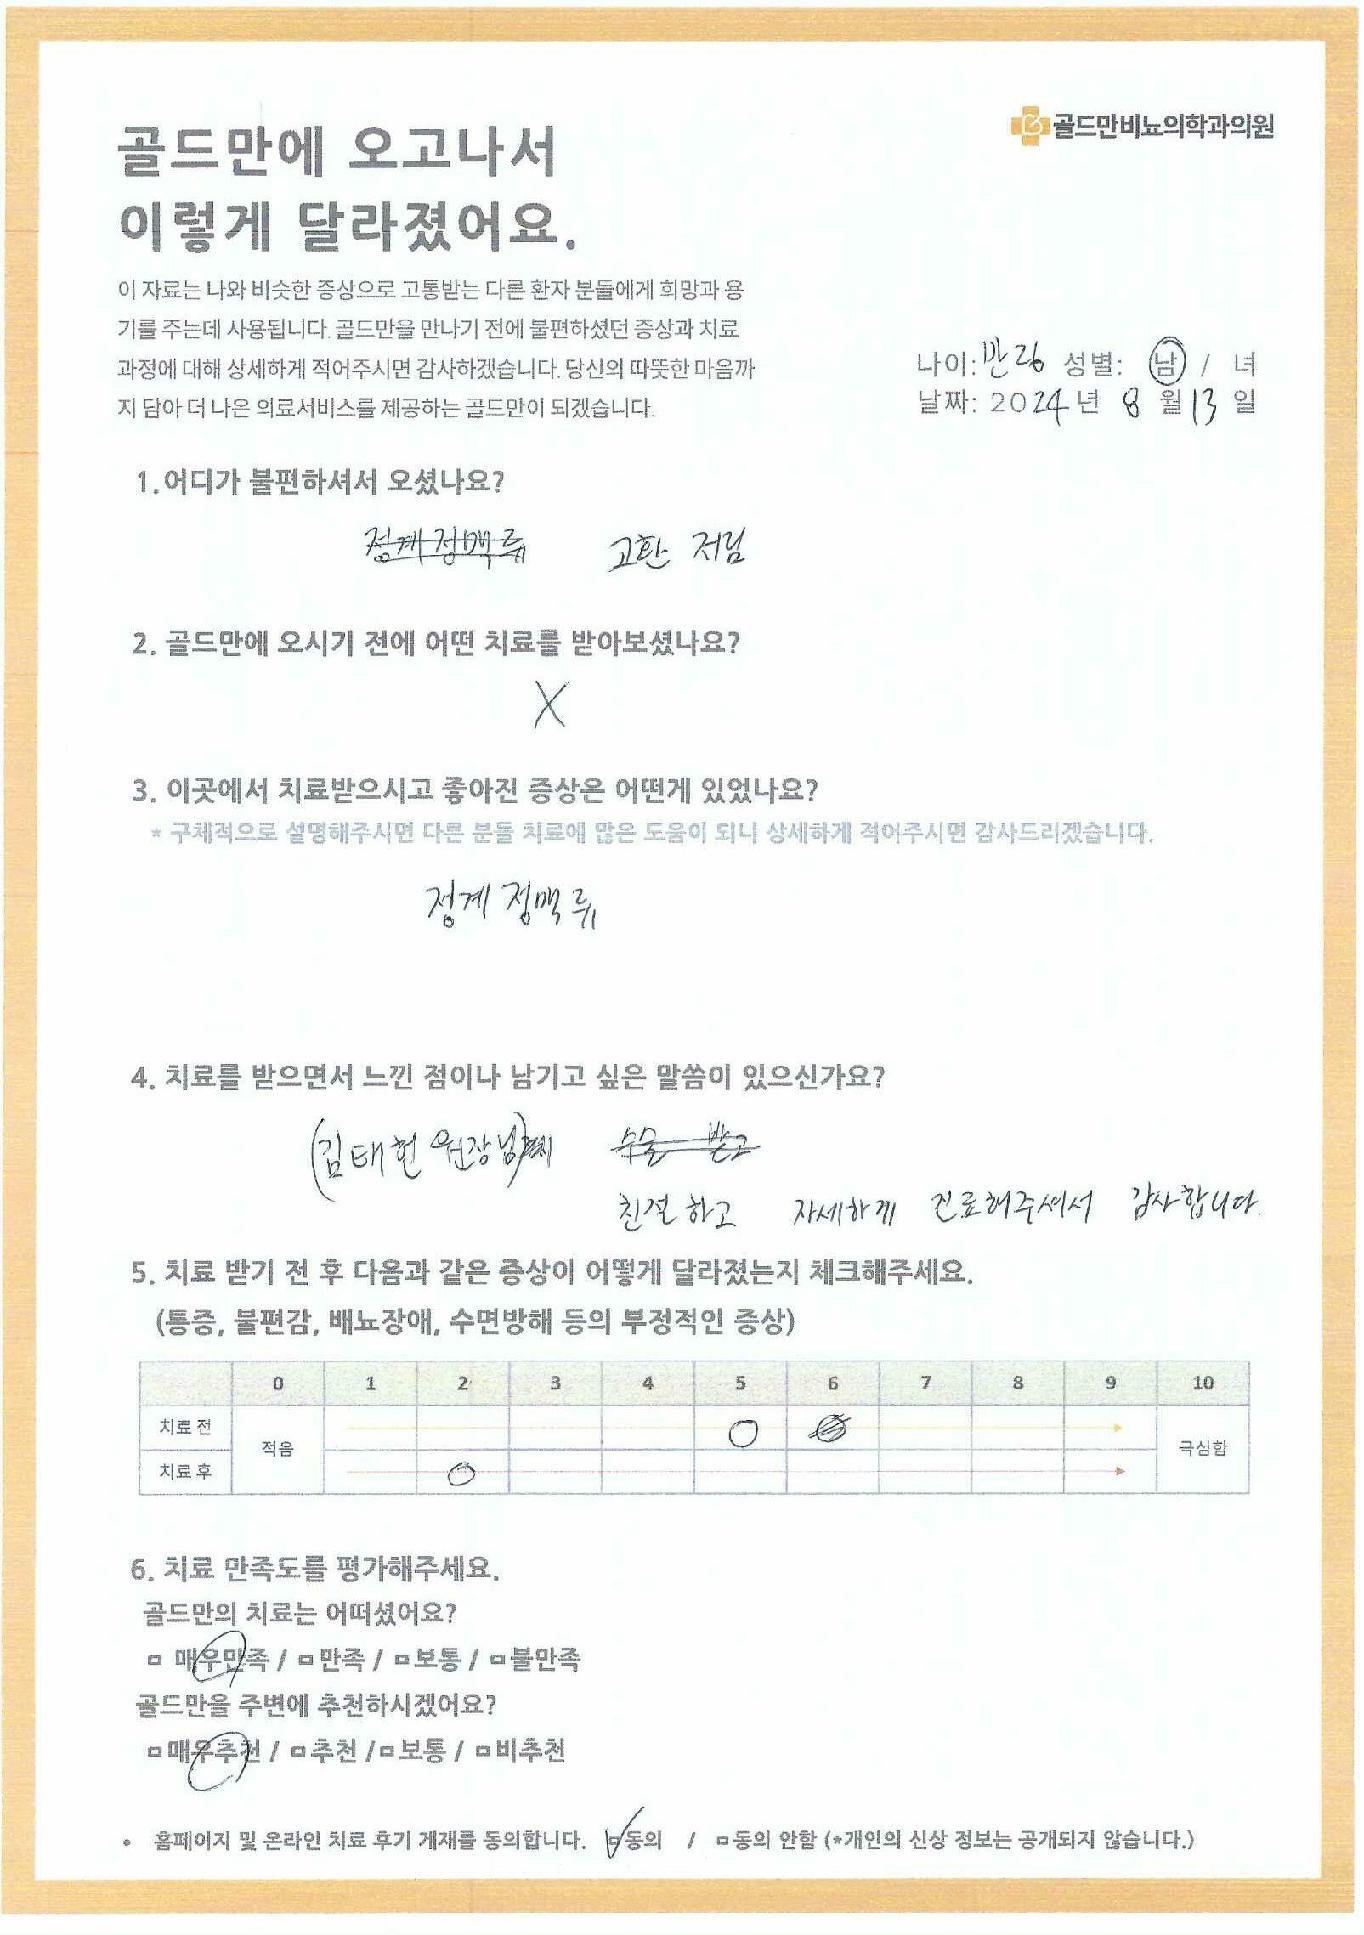 골드만비뇨의학과의원
골드만에 오고나서
이렇게 달라졌어요.
이 자료는 나와 비슷한 증상으로 고통받는 다른 환자 분들에게 희망과 용
기를 주는데 사용됩니다. 골드만을 만나기 전에 불편하셨던 증상과 치료
과정에 대해 상세하게 적어주시면 감사하겠습니다. 당신의 따뜻한 마음까
지 담아 더 나은 의료서비스를 제공하는 골드만이 되겠습니다.
나이: 만 26 성별: 남 / 녀
날짜: 2024년 8월 13일
1. 어디가 불편하셔서 오셨나요?
정계정맥류 고환 저림
2. 골드만에 오시기 전에 어떤 치료를 받아보셨나요?
X
3. 이곳에서 치료받으시고 좋아진 증상은 어떤게 있었나요?
* 구체적으로 설명해주시면 다른 분들 치료에 많은 도움이 되니 상세하게 적어주시면 감사드리겠습니다.
정계정맥류
4. 치료를 받으면서 느낀 점이나 남기고 싶은 말씀이 있으신가요?
(김태헌 원장님) 수술 받고
친절하고 자세하게 진료해주셔서 감사합니다
5. 치료 받기 전 후 다음과 같은 증상이 어떻게 달라졌는지 체크해주세요.
(통증, 불편감, 배뇨장애, 수면방해 등의 부정적인 증상)
0 1 2 3 4 5 6 7 8 9 10
치료 전
적음 극심함
치료 후
6. 치료 만족도를 평가해주세요.
골드만의 치료는 어떠셨어요?
□ 매우만족 / □만족 / □보통 / □불만족
골드만을 주변에 추천하시겠어요?
□매우추천 / □추천 /□보통 / □비추천
• 홈페이지 및 온라인 치료 후기 게재를 동의합니다. □동의 / □동의 안함 (*개인의 신상 정보는 공개되지 않습니다.)